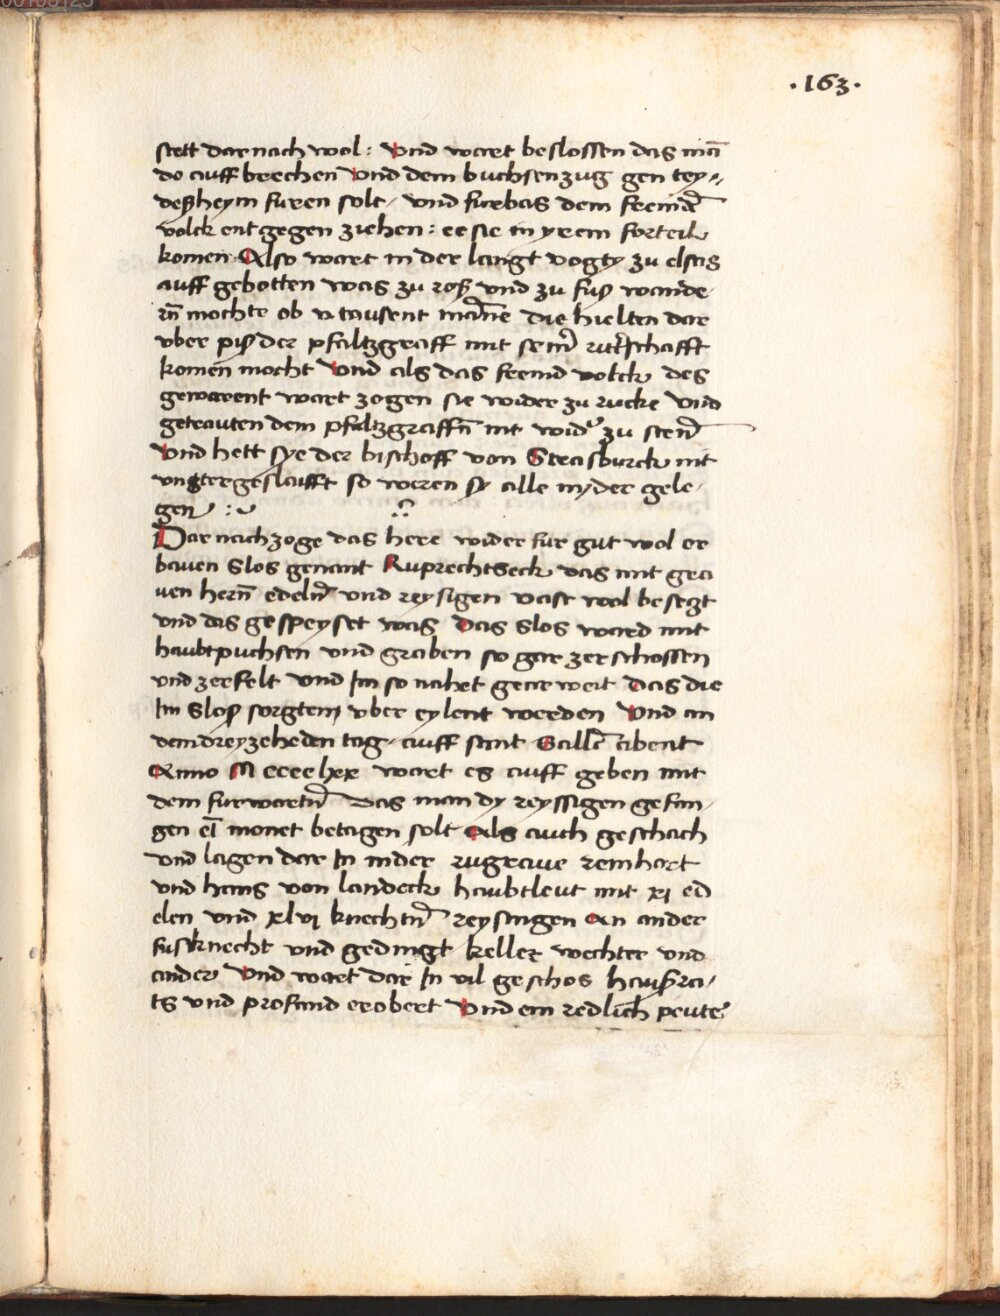 ·163·
stett dar nach wol : Und wart beslossen das mā
do auff brechen Und dem buchsenzug gen tey„
deßheym furen solt / und furbas dem fremdē
volck entgegen ziehen : ee sie in yrem forteil
komen Also wart in der langt vogty zu elsas
auff gebotten was zu roß und zu fuß wande
rn̄ mochte ob v tausent man̄e die hielten dar
vber piß der pfaltzgraff mit sein̄ rittschafft
komen mocht Und als das fremd volck des
gewarent wart zogen sie wider zu rucke Und
getrauten dem pfaltzgraffn̄ nit wid' zu sten̄
Und hett sye der bischoff von Strasburck nit
untergeslaufft so weren sy alle nyder gele,
gen :
Dar nach zoge das here wider fur gut wol er
bauen Slos genant Ruprechtseck das mit gra
uen hern̄ edeln̄ und reysigen vast wol besetzt
und das gespeyset was Das Slos ward mit
haubtpuchsen und graben so gar zerschossen
und zerfelt und Im so nahet gearweit Das die
Im Sloß sorgten vber eylent werden Und an
dem dreyzeheden tag auff sant Gallē abent
Anno M cccclxx wart es auff geben mit
dem furwartn̄ Das man dy reyssigen gefan,
gen eī monet betagen solt Als auch geschach
und lagen dar In nider rugraue reinhart
und hans von landeck haubtleut mit xi ed
elen und xlvi knechtn̄ reysingen An ander
fusknecht und gedingt keller wechter und
ander Und wart dar In vil geschos haußra,
ts und profand erobert Und ein redlich peute